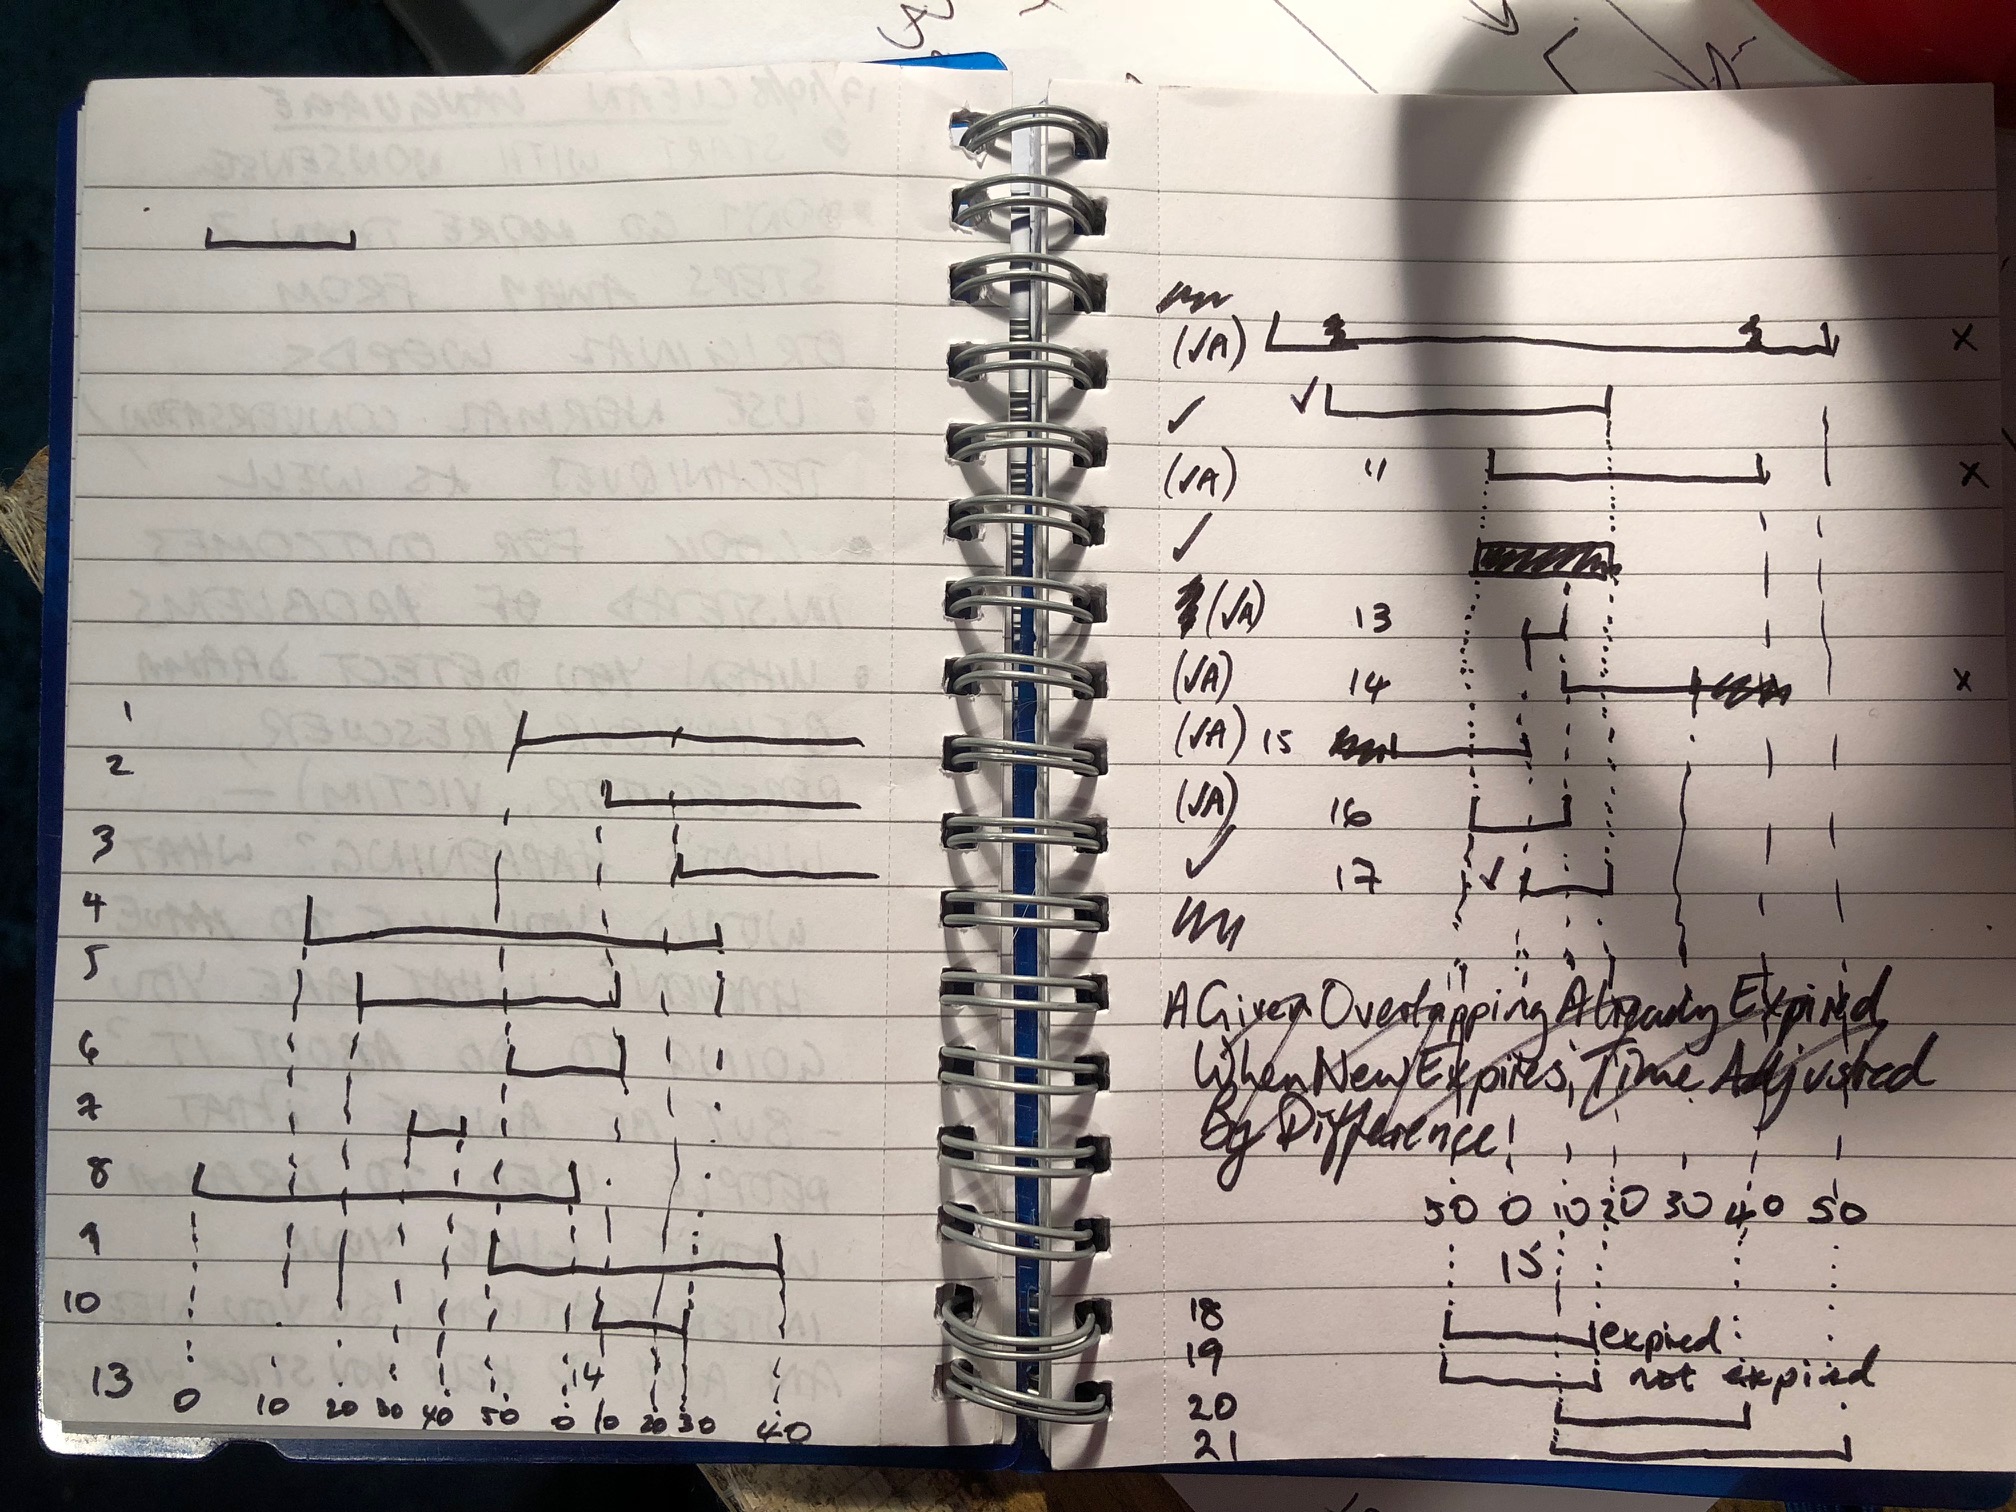 1
2
3
4
5
6
7
8
9
10
13 14
0 10 20 30 40 50 0 10 20 30 40
(√A) x
✓ ✓
(√A) 11 x
✓
(√A) 13
(√A) 14 x
(√A) 15
(√A) 16
✓ 17 ✓
A Given Overlapping Already Expired
When New Expires, Time Adjusted
By Difference!
50 0 10 20 30 40 50
15
18 expired
19 not expired
20
21